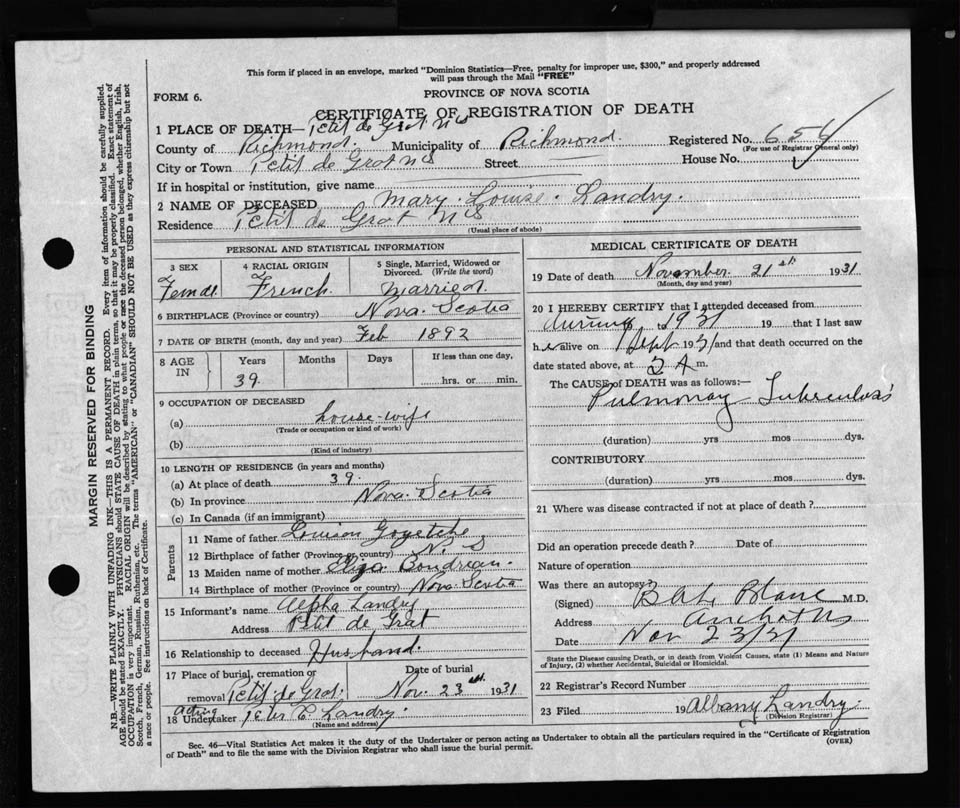 This form if placed in an envelope, marked "Dominion Statistics—Free, penalty for improper use, $300," and properly addressed
will pass through the Mail "FREE"
PROVINCE OF NOVA SCOTIA
FORM 6.
CERTIFICATE OF REGISTRATION OF DEATH
1 PLACE OF DEATH— Petit de Grat N S
County of Richmond. Municipality of Richmond. Registered No. 654
(For use of Registrar General only)
City or Town Petit de Grat N S Street House No.
If in hospital or institution, give name
2 NAME OF DECEASED Mary Louise Landry.
Residence Petit de Grat N S
(Usual place of abode)
PERSONAL AND STATISTICAL INFORMATION
3 SEX 4 RACIAL ORIGIN 5 Single, Married, Widowed or
Divorced. (Write the word)
Female French. Married.
6 BIRTHPLACE (Province or country) Nova Scotia
7 DATE OF BIRTH (month, day and year) Feb 1892
8 AGE IN Years Months Days If less than one day,
39. hrs. or min.
9 OCCUPATION OF DECEASED
(a) house-wife
(Trade or occupation or kind of work)
(b)
(Kind of industry)
10 LENGTH OF RESIDENCE (in years and months)
(a) At place of death 39.
(b) In province Nova Scotia
(c) In Canada (if an immigrant)
Parents
11 Name of father Louison Goyetche
12 Birthplace of father (Province or country) N. S
13 Maiden name of mother Eliza Boudreau.
14 Birthplace of mother (Province or country) Nova Scotia
15 Informant's name Alpha Landry
Address Petit de Grat
16 Relationship to deceased Husband.
17 Place of burial, cremation or Date of burial
removal Petit de Grat. Nov. 23rd 1931
Acting
18 Undertaker Peter C Landry.
(Name and address)
MEDICAL CERTIFICATE OF DEATH
19 Date of death November 21st 1931
(Month, day and year)
20 I HEREBY CERTIFY that I attended deceased from
during 1931 19 that I last saw
her alive on 1 Sept 1931 and that death occurred on the
date stated above, at 2 A m.
The CAUSE of DEATH was as follows:—
Pulmonary Tuberculosis
(duration) yrs mos dys.
CONTRIBUTORY
(duration) yrs mos dys.
21 Where was disease contracted if not at place of death?
Did an operation precede death? Date of
Nature of operation
Was there an autopsy?
(Signed) Blanc M.D.
Address Arichat N S
Date Nov 23/31
State the Disease causing Death, or in death from Violent Causes, state (1) Means and Nature
of Injury, (2) whether Accidental, Suicidal or Homicidal.
22 Registrar's Record Number
23 Filed 19 Albany Landry.
(Division Registrar)
Sec. 46—Vital Statistics Act makes it the duty of the Undertaker or person acting as Undertaker to obtain all the particulars required in the "Certificate of Registration
of Death" and to file the same with the Division Registrar who shall issue the burial permit.
(OVER)
MARGIN RESERVED FOR BINDING
N.B.—WRITE PLAINLY WITH UNFADING INK—THIS IS A PERMANENT RECORD. Every item of information should be carefully supplied.
AGE should be stated EXACTLY. PHYSICIANS should STATE CAUSE OF DEATH in plain terms, so that it may be properly classified. Exact statement of
OCCUPATION is very important. RACIAL ORIGIN will be described by stating to what people or race the deceased person belonged, whether English, Irish,
Scotch, French, German, Russian, Ruthenian, etc. The terms "AMERICAN" or "CANADIAN" SHOULD NOT BE USED as they express citizenship but not
a race or people. See instructions on back of Certificate.